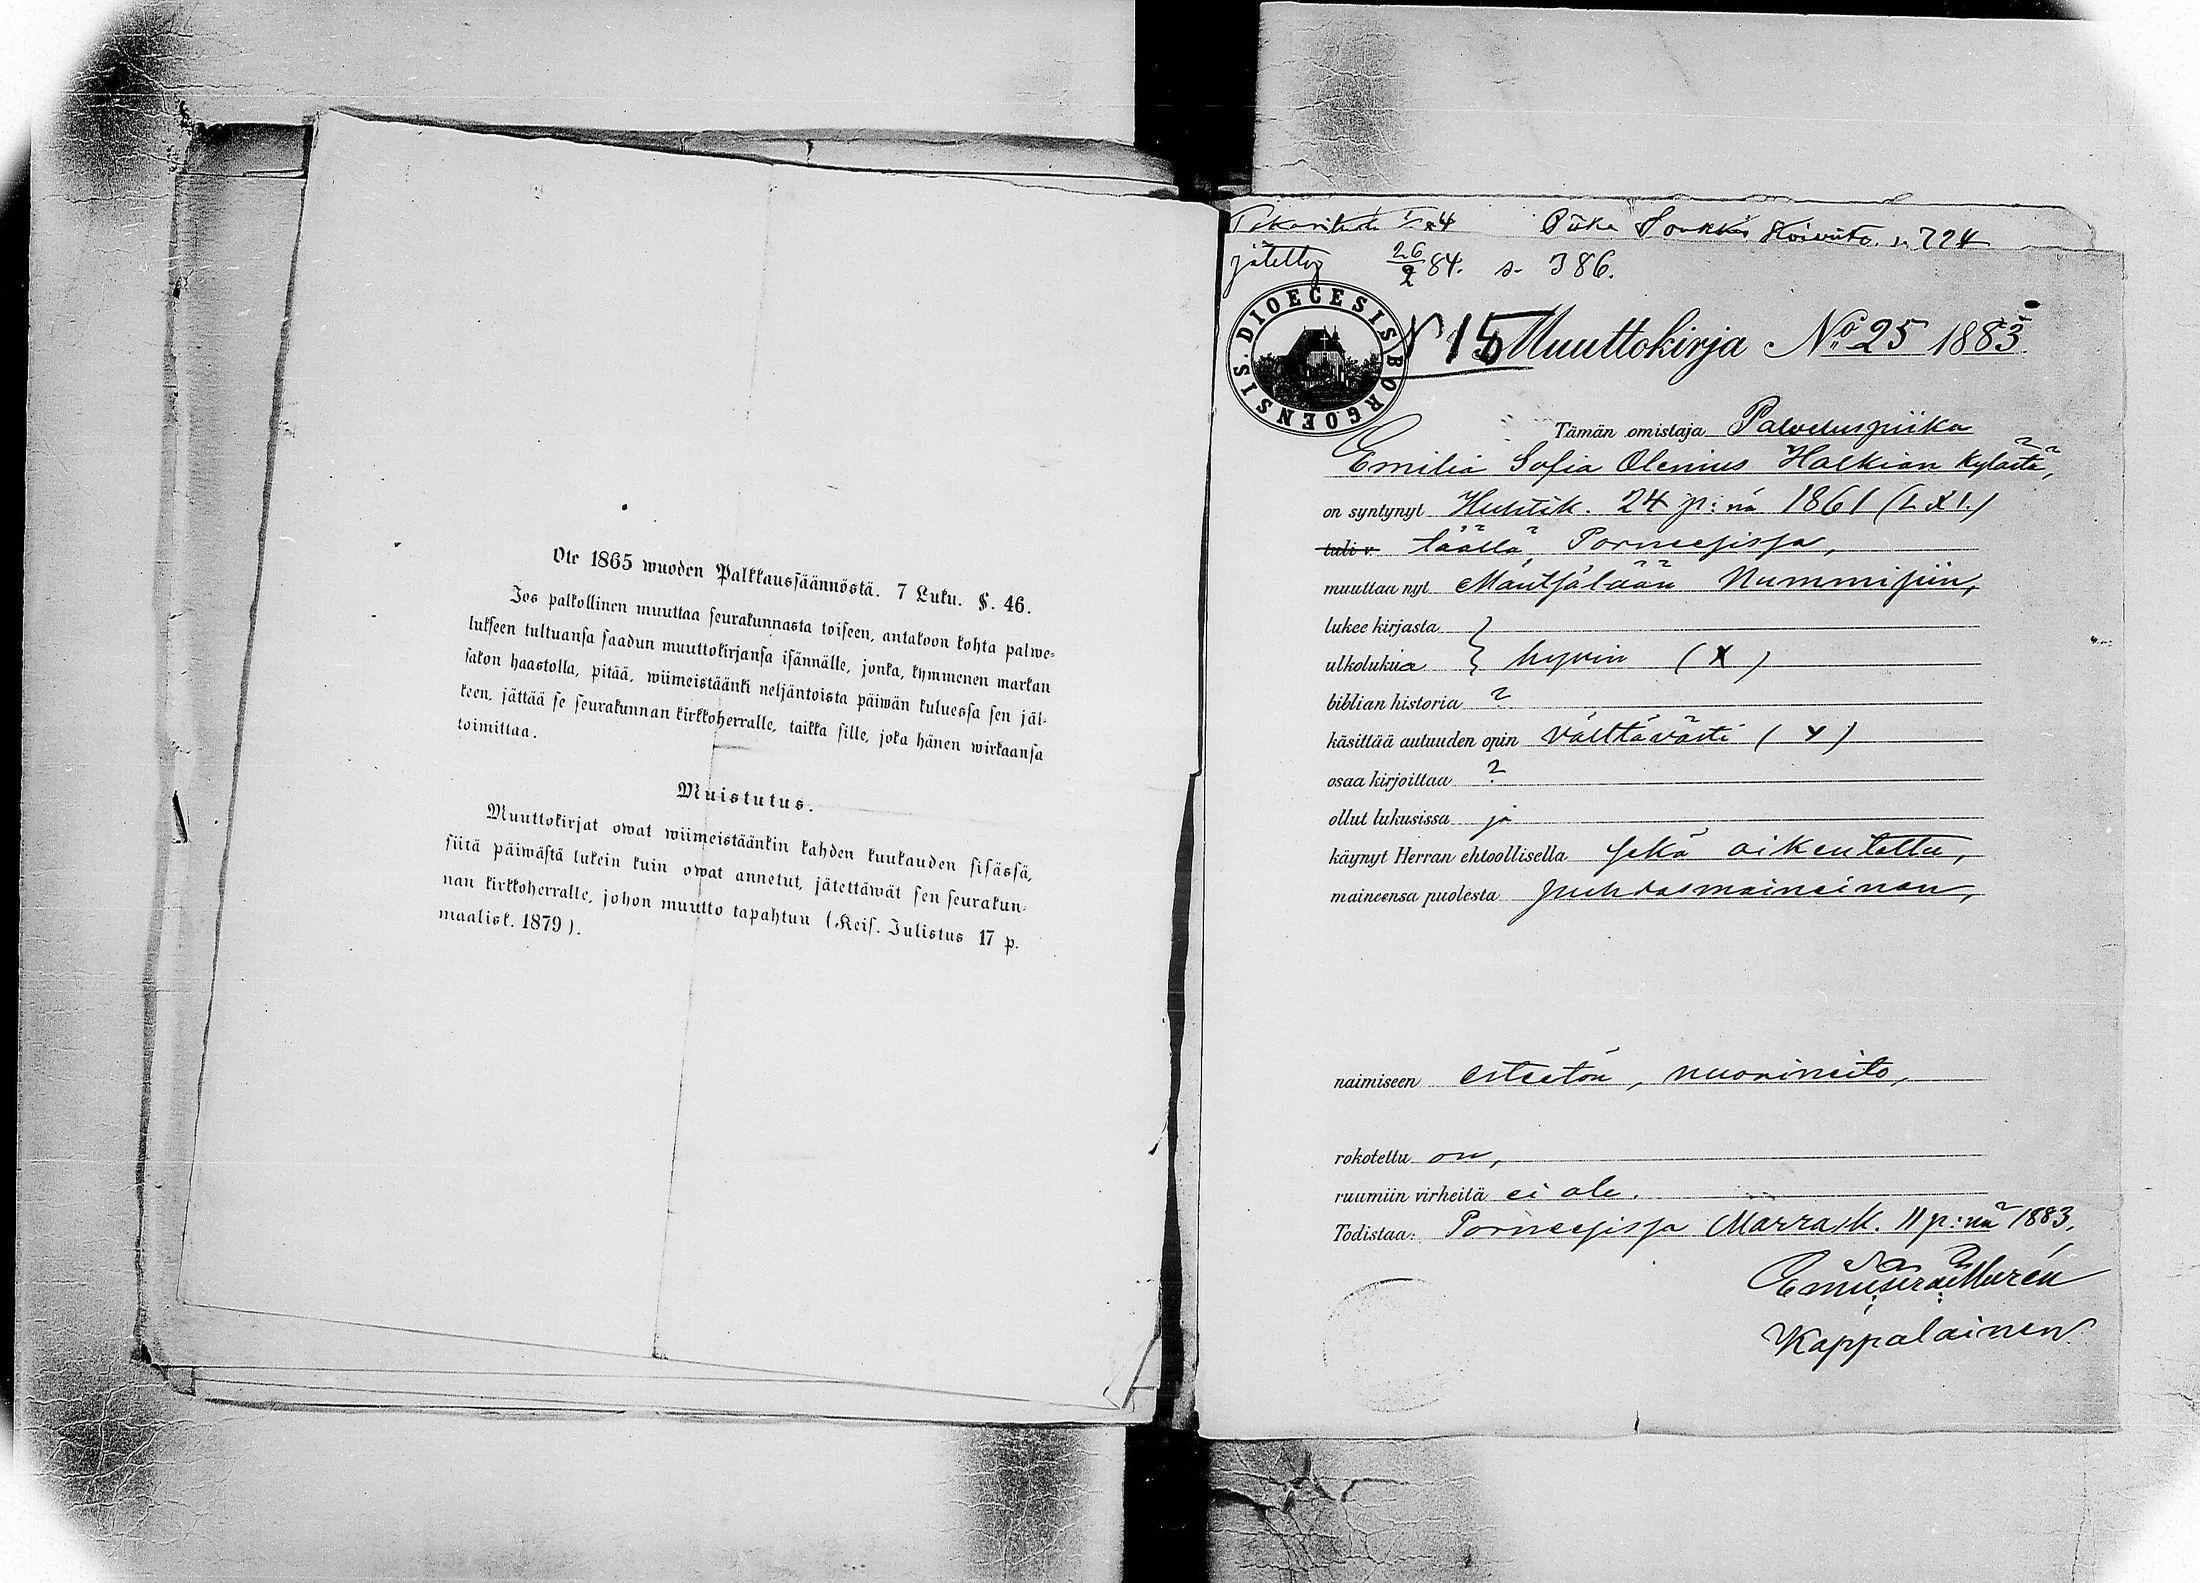 Ote 1865 wuoden Palkkaussäännöstä. 7 Luku. §. 46.
Jos palkollinen muuttaa seurakunnasta toiseen, antakoon kohta palwe-
lukseen tultuansa saadun muuttokirjansa isännälle, jonka, kymmenen markan
sakon haastolla, pitää, wiimeistäänki neljäntoista päiwän kuluessa sen jäl-
keen, jättää se seurakunnan kirkkoherralle, taikka sille, joka hänen wirkaansa
toimittaa.
Muistutus.
Muuttokirjat owat wiimeistäänkin kahden kuukauden sisässä,
siitä päiwästä lukein kuin owat annetut, jätettäwät sen seurakun-
nan kirkkoherralle, johon muutto tapahtuu (Keis. Julistus 17 p.
maalisk. 1879).
Piika 724
jätetty 26/2 84. s. 386.
DIOECESIS BORGOENSIS.
N 15 Muuttokirja No 25 1883.
Tämän omistaja Palveluspiika
Emilia Sofia Olenius Halkian kylästä,
on syntynyt Huhtik. 24 p:nä 1861 (LXI.)
tuli v. täällä Porneesissa,
muuttaa nyt Mäntsälään Nummisiin,
lukee kirjasta
ulkolukua } hyvin (X)
biblian historia ?
käsittää autuuden opin välttävästi ( Y )
osaa kirjoittaa ?
ollut lukusissa ja
käynyt Herran ehtoollisella sekä oikeutettu,
maineensa puolesta puhdasmaineinen,
naimiseen esteetön, nuori neito,
rokotettu on,
ruumiin virheitä ei ole.
Todistaa: Porneesissa Marrask. 11 p:nä 1883,
Kappalainen.